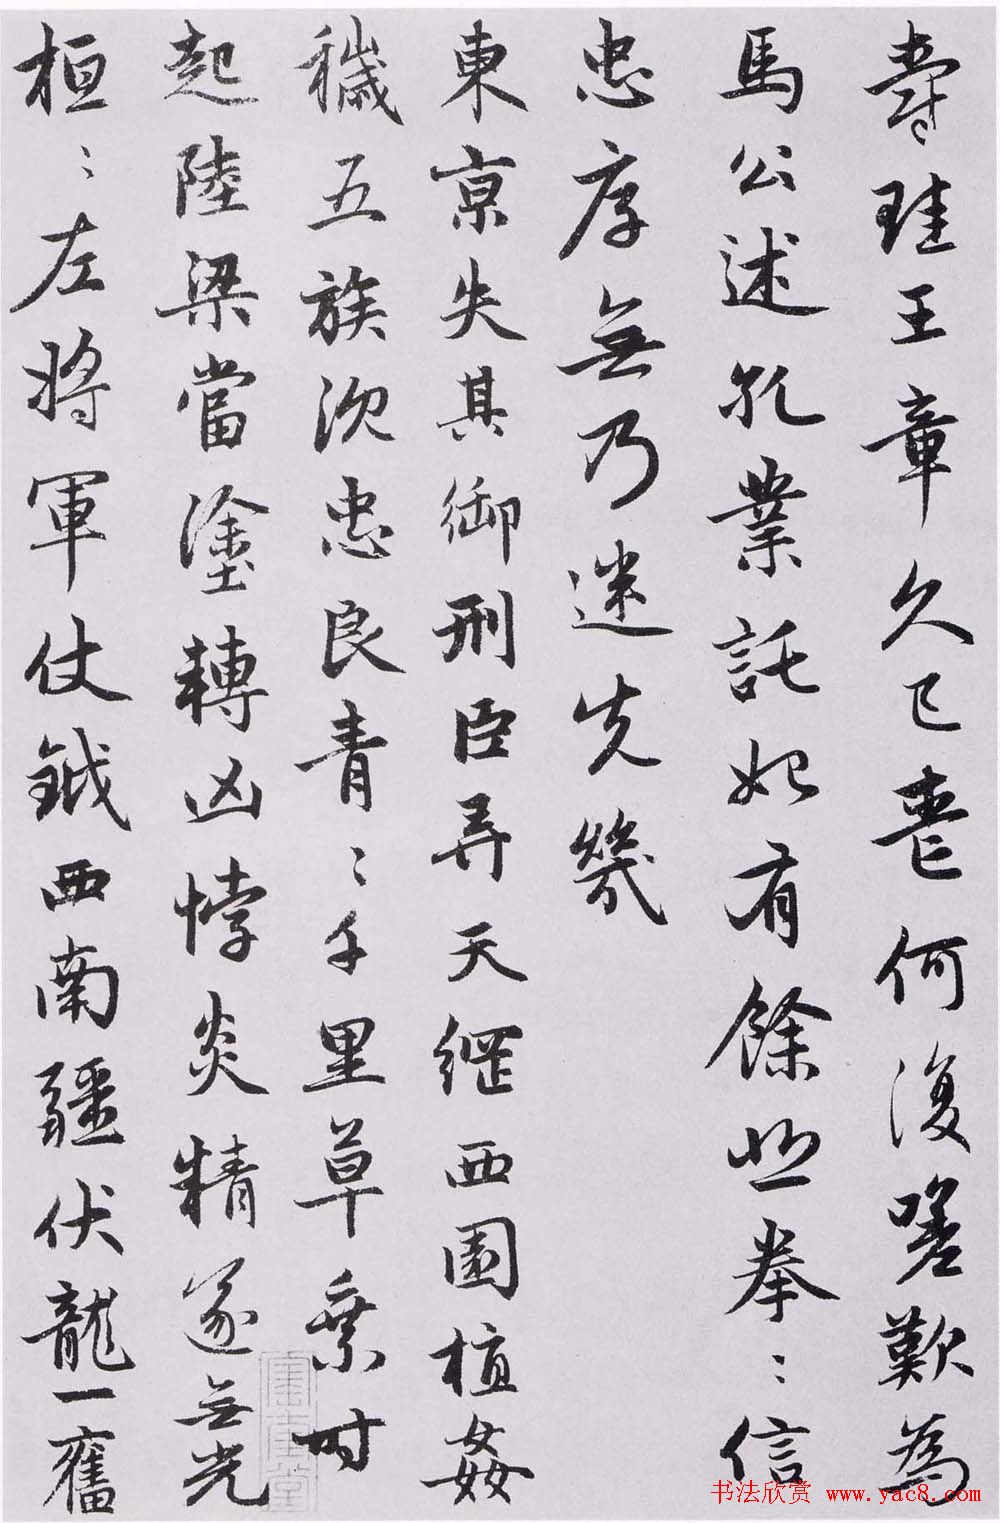 爵珪王章久已喪何復嗟歎為
馬公述孔業託始有餘悲拳〻信
忠厚無乃迷先幾
東京失其御刑臣弄天綱西園植姦
穢五族沉忠良青〻千里草乘時
起陸梁當塗轉凶悖炎精遂無光
桓〻左將軍仗鉞西南疆伏龍一奮
书法欣赏 www.yac8.com